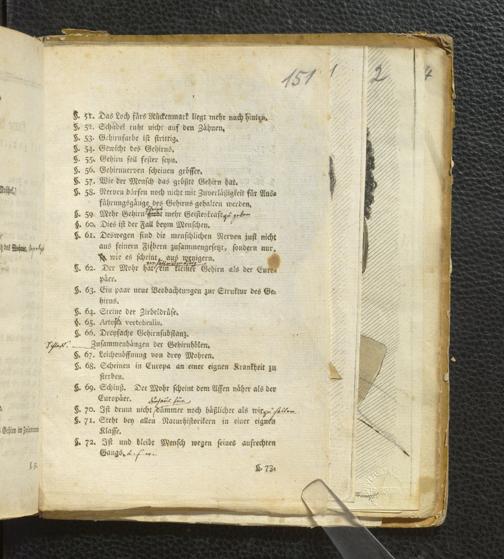 151
2
4
§. 51. Das Loch fürs Rückenmark liegt mehr nach hinten.
§. 52. Schädel ruht nicht auf den Zähnen.
§. 53. Gehirnfarbe ist strittig.
§. 54. Gewicht des Gehirns.
§. 55. Gehirn soll fester seyn.
§. 56. Gehirnnerven scheinen grösser.
§. 57. Wie der Mensch das größte Gehirn hat.
§. 58. Nerven dürfen noch nicht mit Zuverläßigkeit für Aus-
führungsgänge des Gehirns gehalten werden.
§. 59. Mehr Gehirn mehr Geisteskraft zu geben
§. 60. Dies ist der Fall beym Menschen.
§. 61. Deswegen sind die menschlichen Nerven just nicht
aus feinern Fiebern zusammengesetzt, sondern nur,
wie es scheint, aus wenigern.
§. 62. Der Mohr hat ein kleiner Gehirn als der Euro-
päer.
§. 63. Ein paar neue Beobachtungen zur Struktur des Ge-
hirns.
§. 64. Steine der Zirbeldrüse.
§. 65. vertebralis.
§. 66. Dreyfache Gehirnsubstanz.
Zusammenhängen der Gehirnhölen.
§. 67. Leichenöffnung von drey Mohren.
§. 68. Scheinen in Europa an einer eignen Krankheit zu
sterben.
§. 69. Schluß. Der Mohr scheint dem Affen näher als der
Europäer.
§. 70. Ist drum nicht dümmer noch häßlicher als wir
§. 71. Steht bey allen Naturhistorikern in einer eignen
Klasse.
§. 72. Ist und bleibt Mensch wegen seines aufrechten
Gangs,
§. 73.